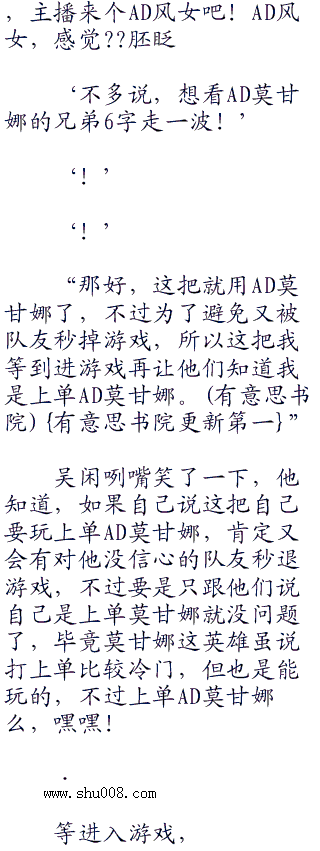 ，主播来个AD风女吧！AD风
女，感觉??胚眨
‘不多说，想看AD莫甘
娜的兄弟6字走一波！’
‘！’
‘！’
“那好，这把就用AD莫
甘娜了，不过为了避免又被
队友秒掉游戏，所以这把我
等到进游戏再让他们知道我
是上单AD莫甘娜。(有意思书
院){有意思书院更新第一}”
吴闲咧嘴笑了一下，他
知道，如果自己说这把自己
要玩上单AD莫甘娜，肯定又
会有对他没信心的队友秒退
游戏，不过要是只跟他们说
自己是上单莫甘娜就没问题
了，毕竟莫甘娜这英雄虽说
打上单比较冷门，但也是能
玩的，不过上单AD莫甘娜
么，嘿嘿！
.
www.shu008.com
等进入游戏，